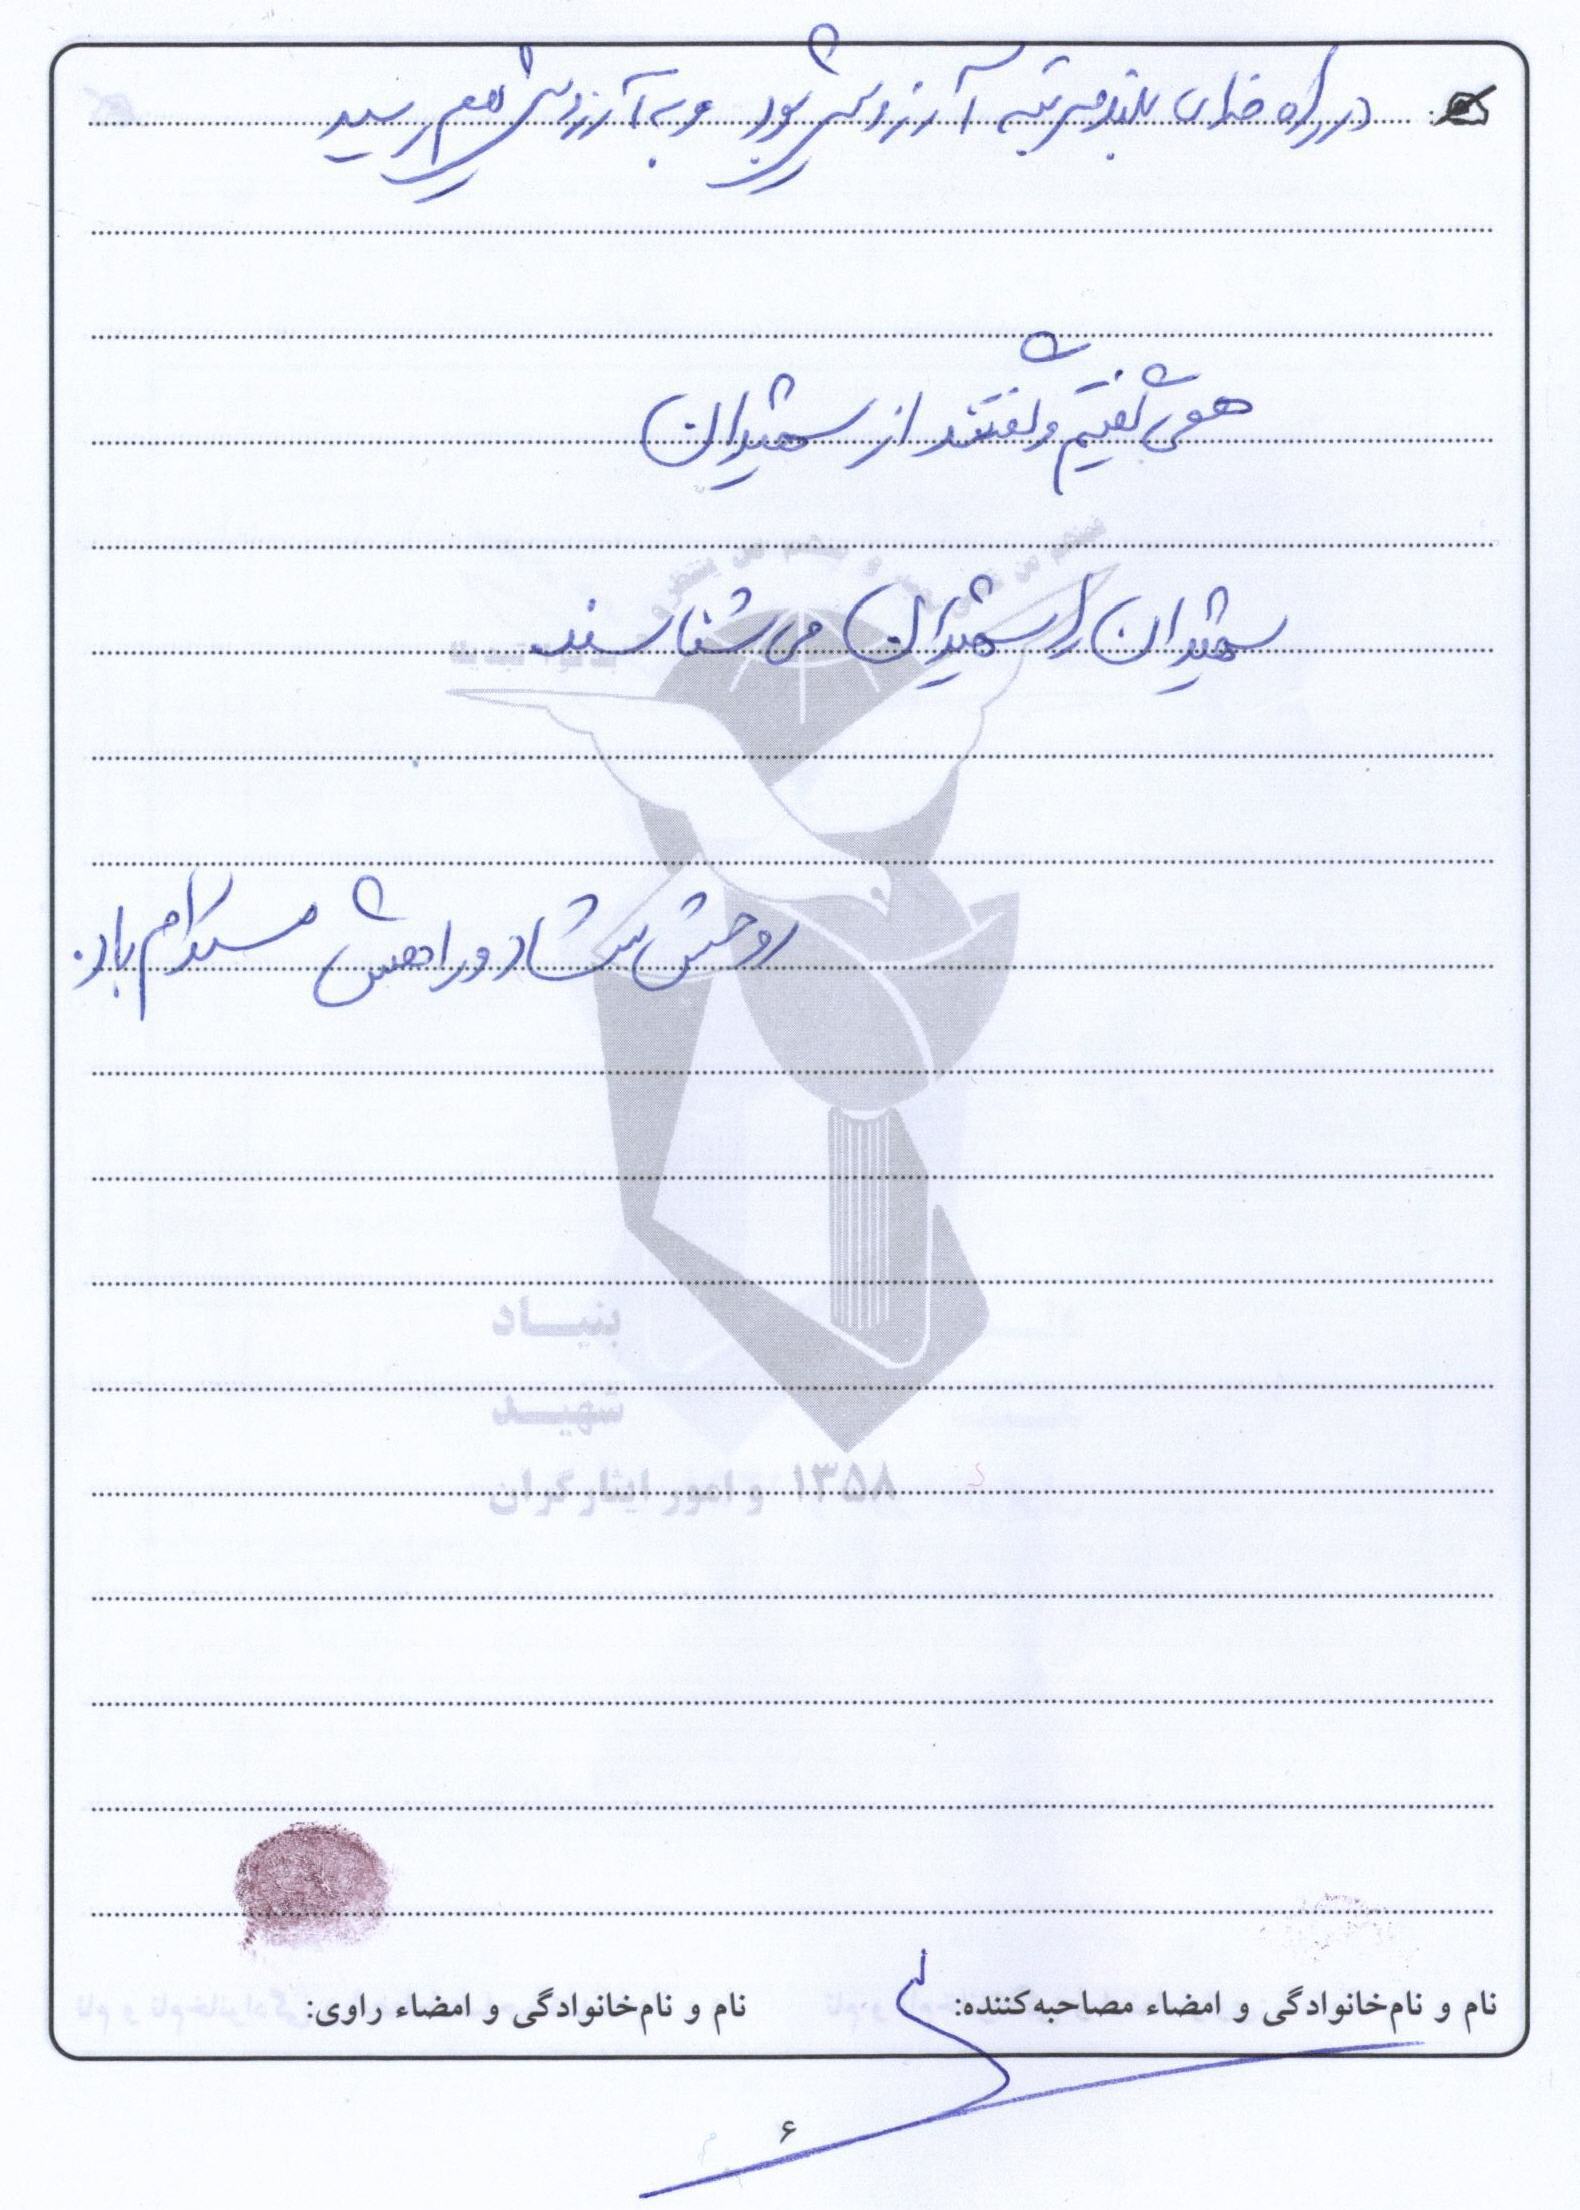 در راه خدای بلند مرتبه آرزویش بود و به آرزویش هم رسید
همی گفتیم و گفتند از شهیدان
شهیدان را شهیدان می شناسند
روحش شاد و راهش مستدام باد.
بنیاد
شهید
و امور ایثارگران ۱۳۵۸
نام و نام‌خانوادگی و امضاء مصاحبه‌کننده:
نام و نام‌خانوادگی و امضاء راوی:
۶